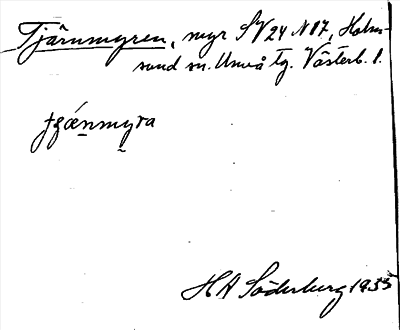 Tjärnmyren, myr SV24 N17, Holm-
sund sn. Umeå tg. Västerb. l.
H A Söderberg 1935